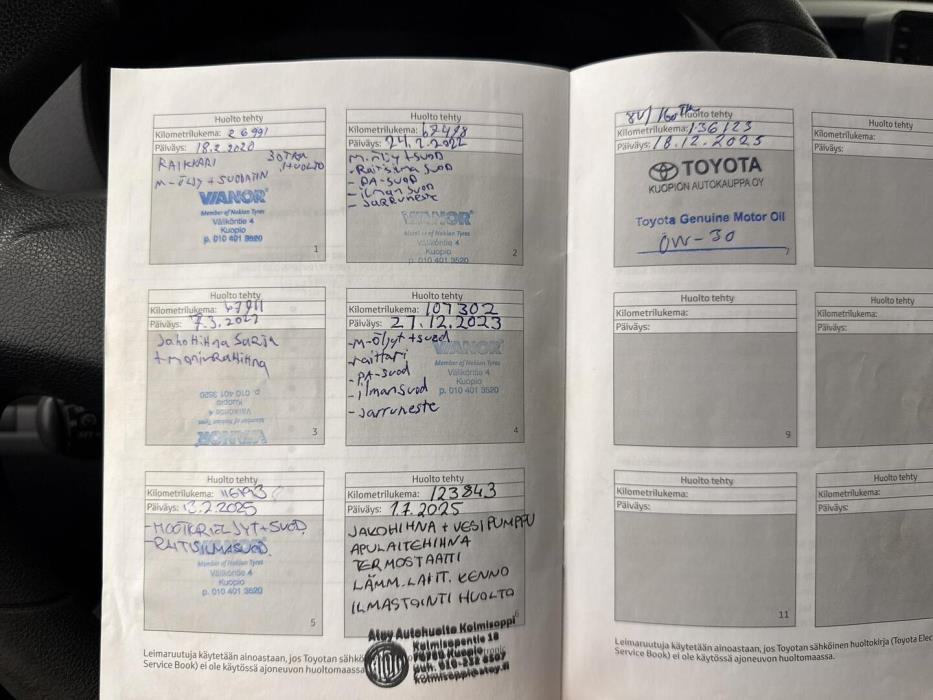 Huolto tehty
Kilometrilukema: 26991
Päiväys: 18.2.2020
RAIKKARI
30TKM
HUOLTO
M-ÖLJY + SUODATIN
VIANOR
Member of Nokian Tyres
Väliköntie 4
Kuopio
p. 010 401 3520
1
Huolto tehty
Kilometrilukema:
Päiväys: 24.2.2022
M-öljy + suod
- Raitisilma SUOD
- PA-SUOD
- ilman SUOD
- Jarruneste
VIANOR
Member of Nokian Tyres
Väliköntie 4
Kuopio
p. 010 401 3520
2
Huolto tehty
Kilometrilukema:
Päiväys:
Jakohihna Sarja
+ moniurahihna
VIANOR
Member of Nokian Tyres
Väliköntie 4
Kuopio
p. 010 401 3520
3
Huolto tehty
Kilometrilukema: 107302
Päiväys: 27.12.2023
-M-Öljyt + suod
-raittari
-PA-suod
-ilmansuod
-Jarruneste
VIANOR
Member of Nokian Tyres
Väliköntie 4
Kuopio
p. 010 401 3520
4
Huolto tehty
Kilometrilukema:
Päiväys: 13.2.2025
-MOOTTORIÖLJYT + SUOD.
-RAITISILMASUOD.
Member of Nokian Tyres
Väliköntie 4
Kuopio
p. 010 401 3520
5
Huolto tehty
Kilometrilukema: 123843
Päiväys: 1.7.2025
JAKOHIHNA + VESIPUMPPU
APULAITEHIHNA
TERMOSTAATTI
LÄMM.LAIT. KENNO
ILMASTOINTI HUOLTO
6
Atoy Autohuolto Kolmisoppi
Kolmisopentie 18
Kuopio
puh. 010-232 6507
kolmisoppi@atoy.fi
Leimaruutuja käytetään ainoastaan, jos Toyotan sähkö
Service Book) ei ole käytössä ajoneuvon huoltomaassa
8V/160TKM
Huolto tehty
Kilometrilukema: 136123
Päiväys: 18.12.2025
TOYOTA
KUOPION AUTOKAUPPA OY
Toyota Genuine Motor Oil
0W-30
7
Huolto tehty
Kilometrilukema:
Päiväys:
Huolto tehty
Kilometrilukema:
Päiväys:
9
Huolto tehty
Kilometrilukema:
Päiväys:
Huolto tehty
Kilometrilukema:
Päiväys:
11
Huolto tehty
Kilometrilukema:
Päiväys:
Leimaruutuja käytetään ainoastaan, jos Toyotan sähköinen huoltokirja (Toyota Elec
Service Book) ei ole käytössä ajoneuvon huoltomaassa.